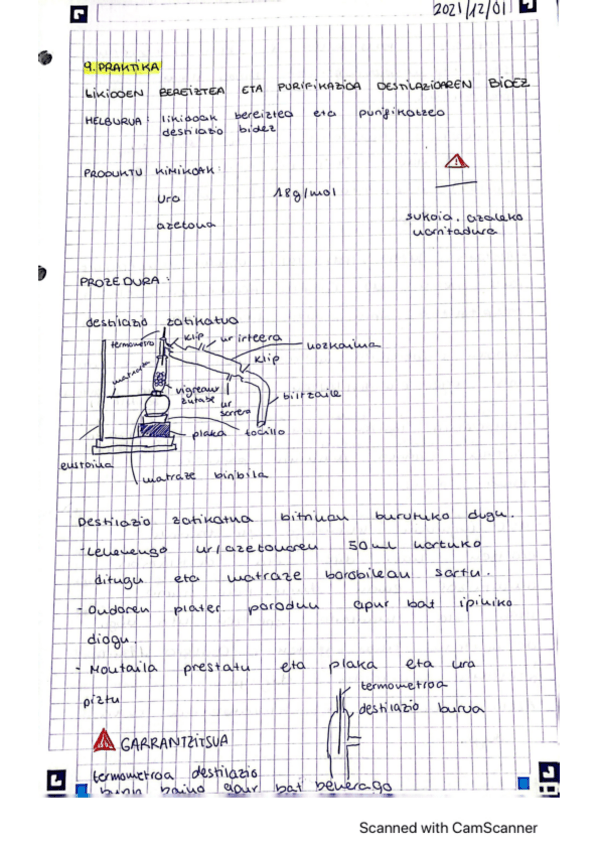 2021/12/01
9. PRAKTIKA
LIKIDOEN BEREIZTEA ETA PURIFIKAZIOA DESTILAZIOAREN BIDEZ
HELBURUA: likidoak bereiztea eta purifikatzea
destilazio bidez
PRODUKTU KIMIKOAK:
Ura 18g/mol
azetona
sukoia, azaleko
narritadura
PROZEDURA:
destilazio zatikatua
termometro
klip
ur irteera
hozkaina
klip
matraze
vigreaux
zutabe
ur
sarrera
biltzaile
plaka
euskina
matraze binbila
Destilazio zatikatua bitartean burutuko dugu.
- Lehenengo ur/azetonaren 50mL hartuko
ditugu eta matraze borobilean sartu.
- Ondoren plater porodun apur bat ipiniko
diogu.
- Muntaia prestatu eta plaka eta ura
piztu
termometroa
destilazio burua
GARRANTZITSUA
termometroa destilazio
burua baino apur bat beherago
Scanned with CamScanner